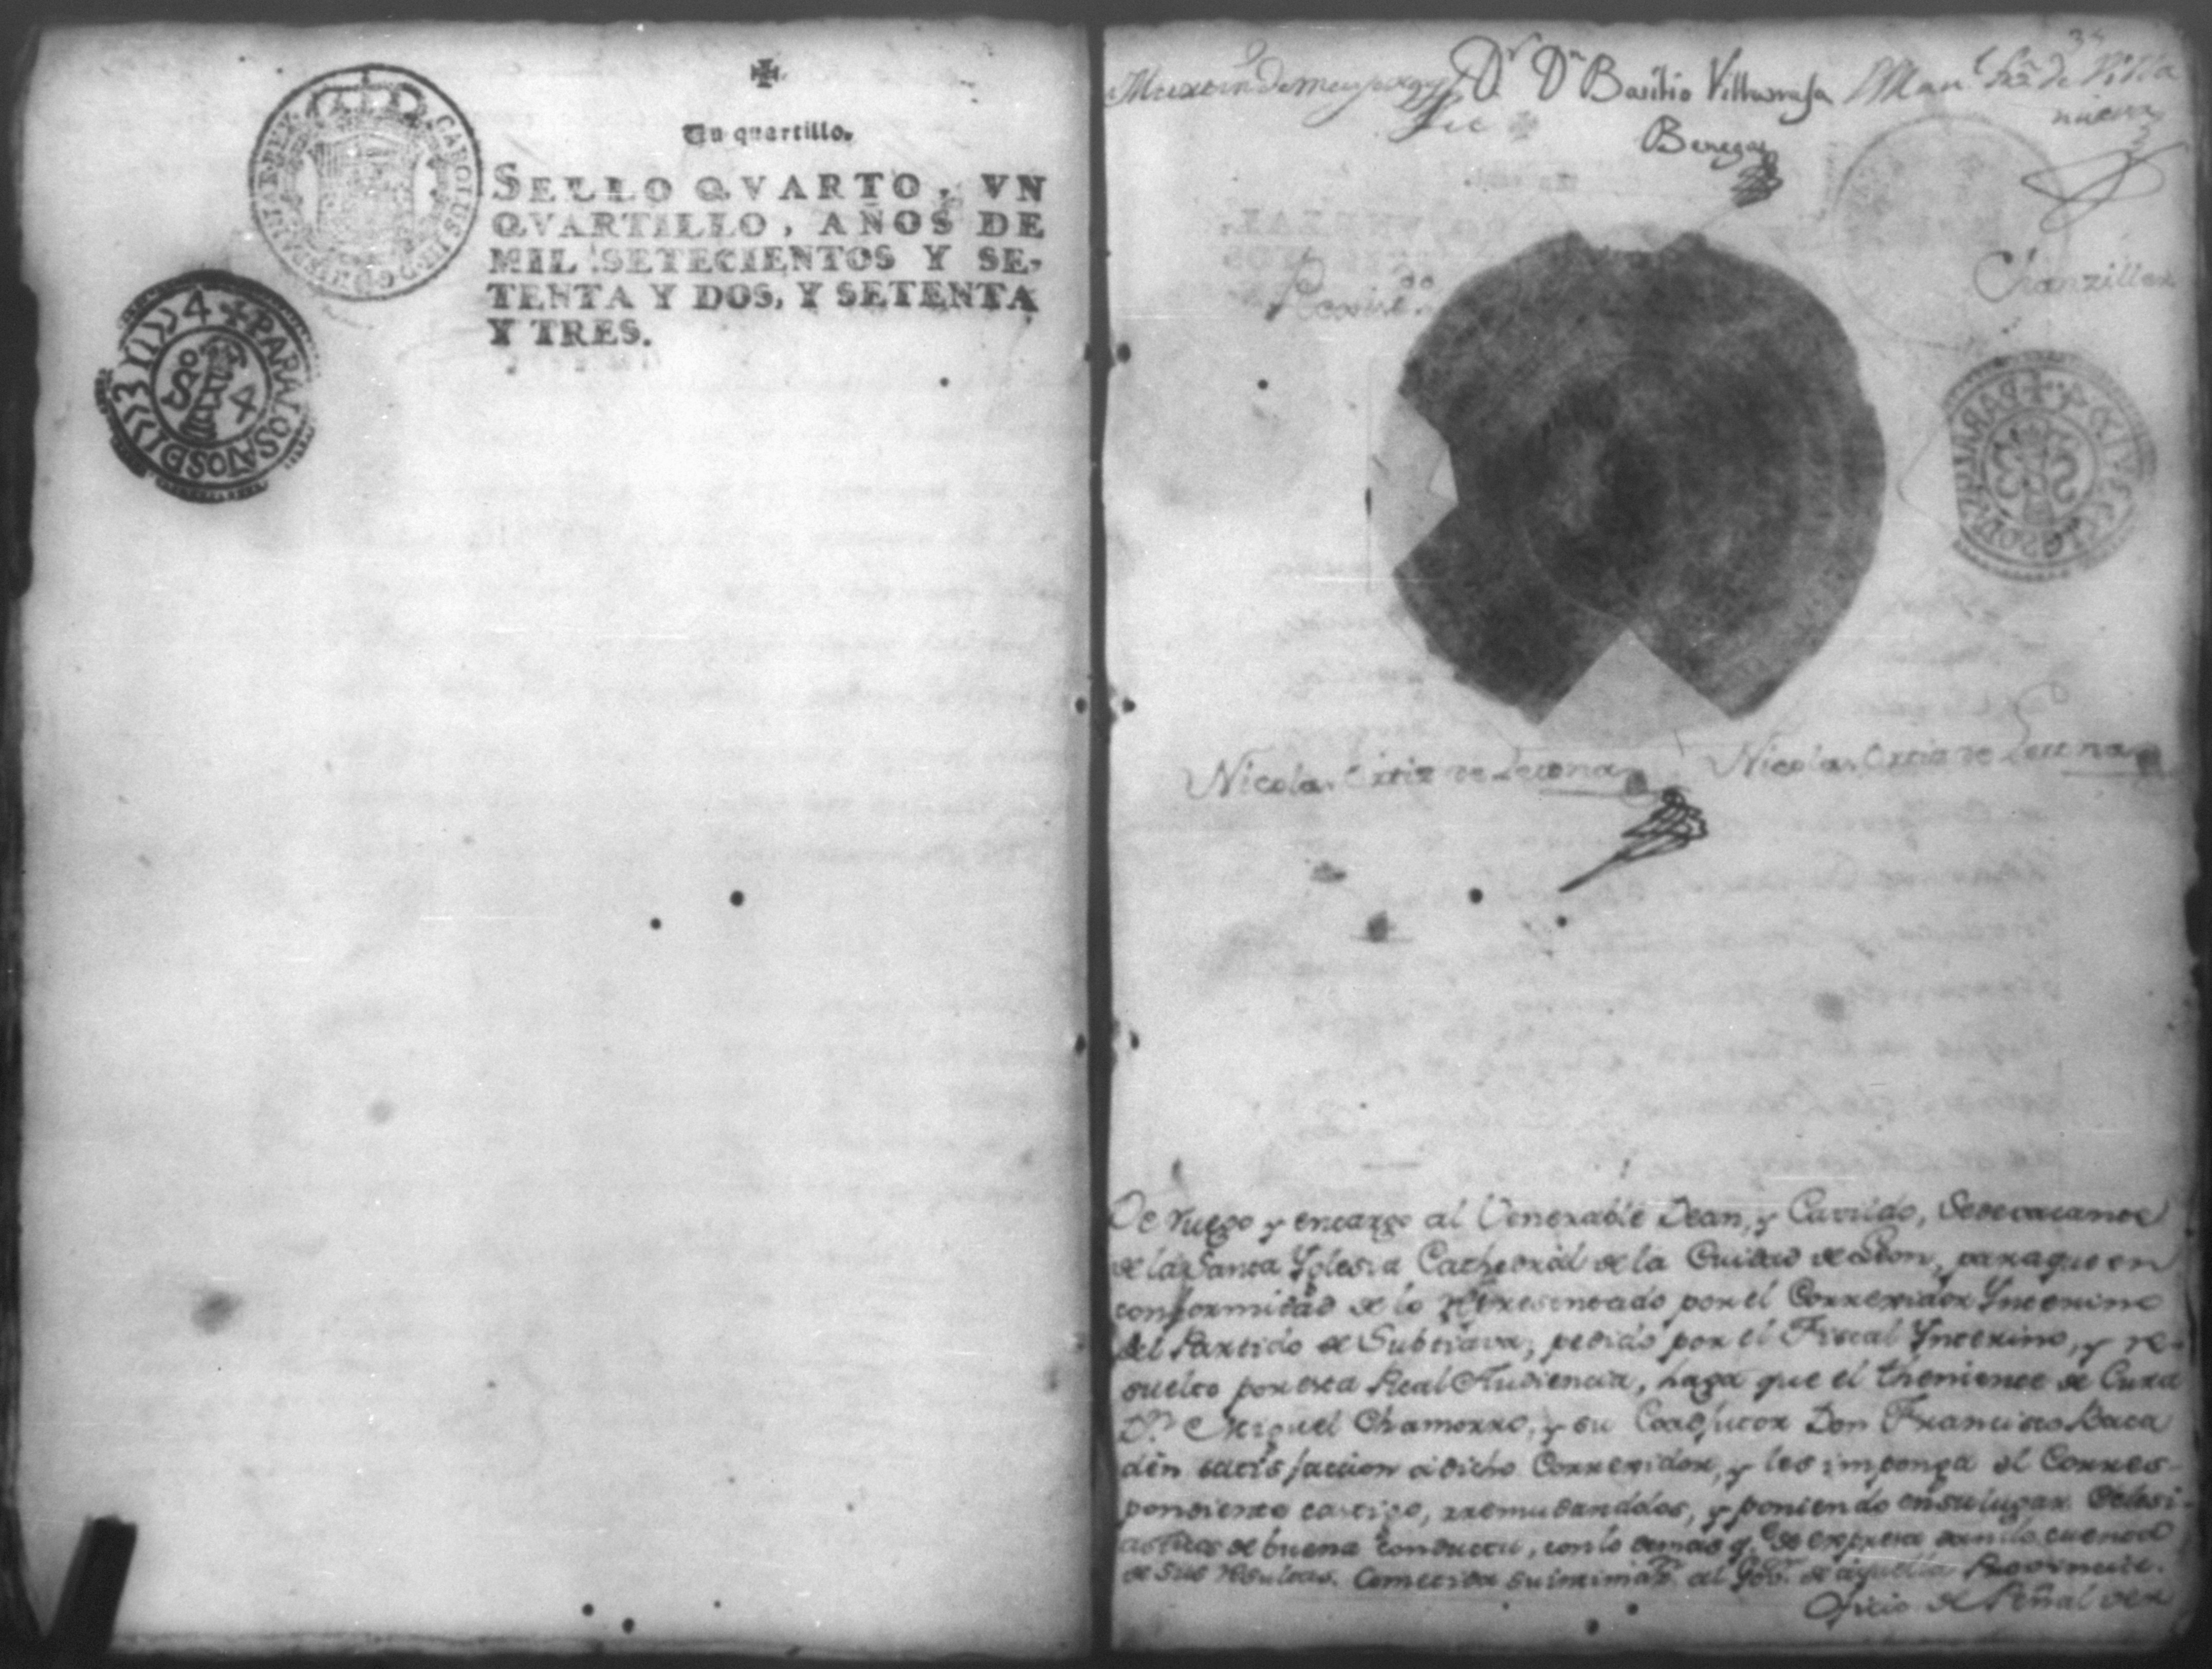 Un quartillo.
SELLO QVARTO, VN
QVARTILLO, AÑOS DE
MIL SETECIENTOS Y SE-
TENTA Y DOS, Y SETENTA
Y TRES.
CAROLUS III
PARA LOS AÑOS D 1773 Y 1774
Dr Dn Basilio Villarrasa
Benegas
Chanziller
Nicolas Ortiz de Letona Nicolas Ortiz de Letona
De ruego y encargo al Venerable Dean, y Cavildo, Sedevacante
de la Santa Yglesia Cathedral de la Ciudad de Leon, para que en
conformidad de lo representado por el Corregidor Ynterino
del Partido de Subtiava, pedido por el Fiscal Ynterino, y re-
suelto por esta Real Audiencia, haga que el theniente de Cura
Dn Miguel Chamorro, y su Coadjutor Don Francisco Baca
dén satisfaccion a dicho Corregidor, y les imponga el Corres-
pondiente castigo, rremudandolos, y poniendo en su lugar Eclesi-
asticos de buena conducta, con lo demas q.e se expresa dando cuenta
de sus resultas. Cometida su intimaz.n al Gov.r de aquella Provincia.
Oficio de Peñalver